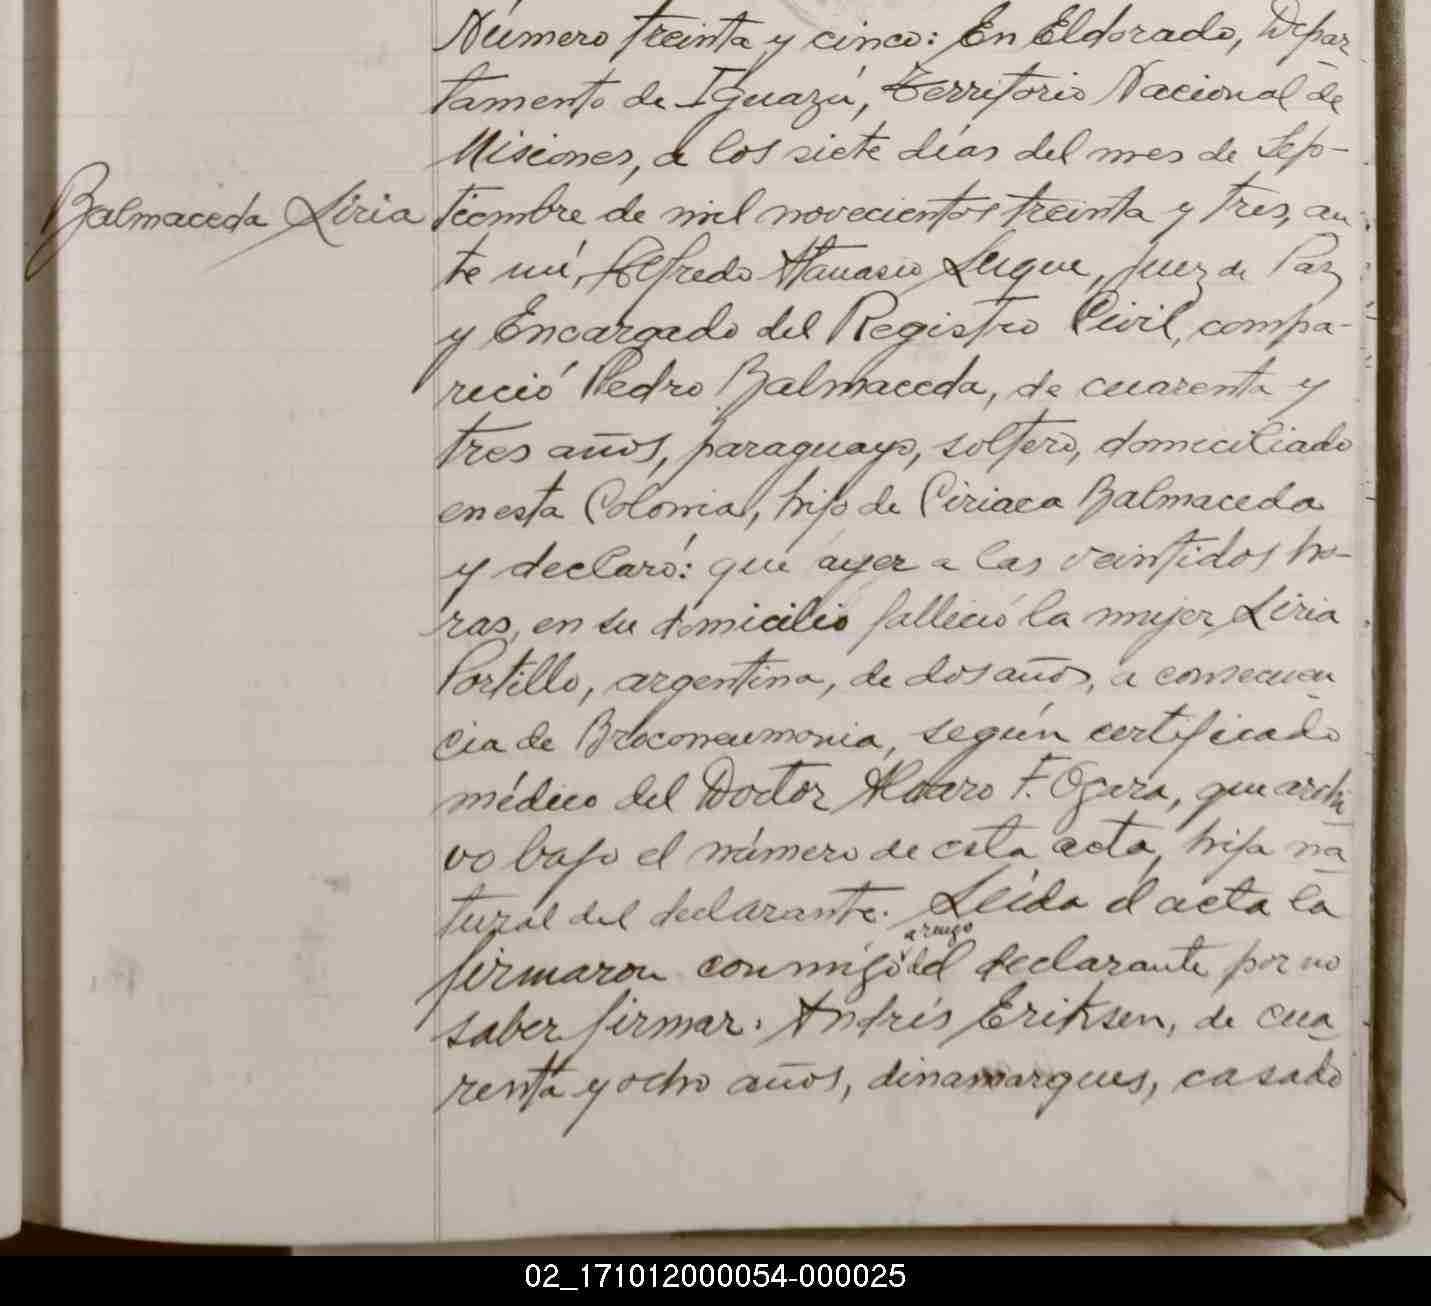 Número treinta y cinco: En Eldorado, Depar
tamento de Iguazú, Territorio Nacional de
Misiones, a los siete días del mes de Sep-
Balmaceda Liria
tiembre de mil novecientos treinta y tres, an
te mí, Alfredo Atanasio Luque, Juez de Paz
y Encargado del Registro Civil, compa-
reció Pedro Balmaceda, de cuarenta y
tres años, paraguayo, soltero, domiciliado
en esta Colonia, hijo de Ciriaca Balmaceda
y declaró: que ayer a las veintidos ho-
ras, en su domicilio falleció la mujer Liria
Portillo, argentina, de dos años, a consecuen
cia de Broconeumonia, según certificado
médico del Doctor Alvaro F. Ogara, que archi
vo bajo el número de esta acta, hija na
tural del declarante. Leída el acta la
a ruego
firmaron conmigo del declarante por no
saber firmar. Andrés Eriksen, de cua
renta y ocho años, dinamarques, casado
02_171012000054-000025